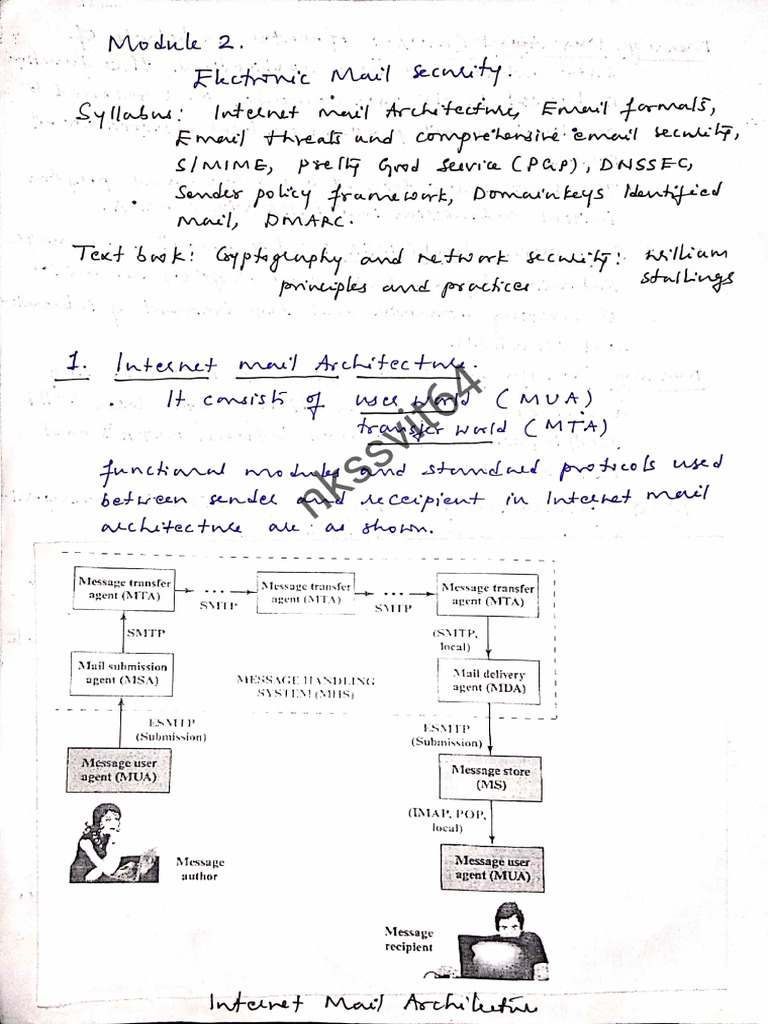 Module 2.
Electronic Mail Security.
Syllabus: Internet mail Architecture, Email formats,
Email threats and comprehensive email security,
S/MIME, Pretty Good Service (PGP), DNSSEC,
Sender policy framework, Domainkeys Identified
Mail, DMARC.
Text book: Cryptography and network security: William
principles and practices Stallings
1. Internet mail Architecture.
It consists of user world (MUA)
transfer world (MTA)
functional modules and standard protocols used
between sender and receipient in Internet mail
architecture are as shown.
nkssvit64
Message transfer
agent (MTA)
SMTP
Message transfer
agent (MTA)
SMTP
Message transfer
agent (MTA)
SMTP
(SMTP,
local)
Mail submission
agent (MSA)
MESSAGE HANDLING
SYSTEM (MHS)
Mail delivery
agent (MDA)
ESMTP
(Submission)
ESMTP
(Submission)
Message user
agent (MUA)
Message store
(MS)
(IMAP, POP,
local)
Message
author
Message user
agent (MUA)
Message
recipient
Internet Mail Architecture